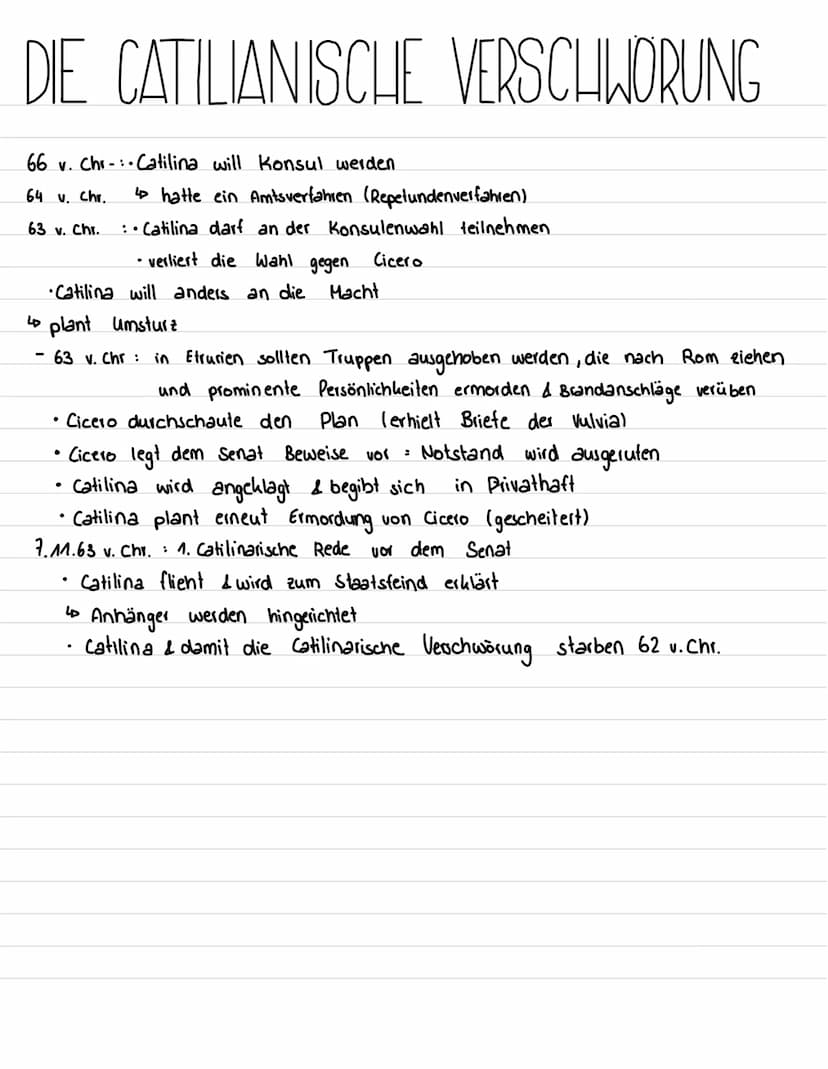 DIE CATILIANISCHE VERSCHWÖRUNG
66 v. Chr-:• Catilina will Konsul werden
64 v. Chr. ↳ hatte ein Amtsverfahren (Repetundenverfahren)
63 v. Chr. : • Catilina darf an der Konsulenwahl teilnehmen
• verliert die Wahl gegen Cicero
• Catilina will anders an die Macht
↳ plant Umsturz
- 63 v. Chr : in Etrurien sollten Truppen ausgehoben werden, die nach Rom ziehen
und prominente Persönlichkeiten ermorden & Brandanschläge verüben
• Cicero durchschaute den Plan (erhielt Briefe der Vulvia)
• Cicero legt dem Senat Beweise vor : Notstand wird ausgerufen
• Catilina wird angeklagt & begibt sich in Privathaft
• Catilina plant erneut Ermordung von Cicero (gescheitert)
7.11.63 v. Chr. : 1. Catilinarische Rede vor dem Senat
• Catilina flieht & wird zum Staatsfeind erklärt
↳ Anhänger werden hingerichtet
• Catilina & damit die Catilinarische Verschwörung starben 62 v. Chr.